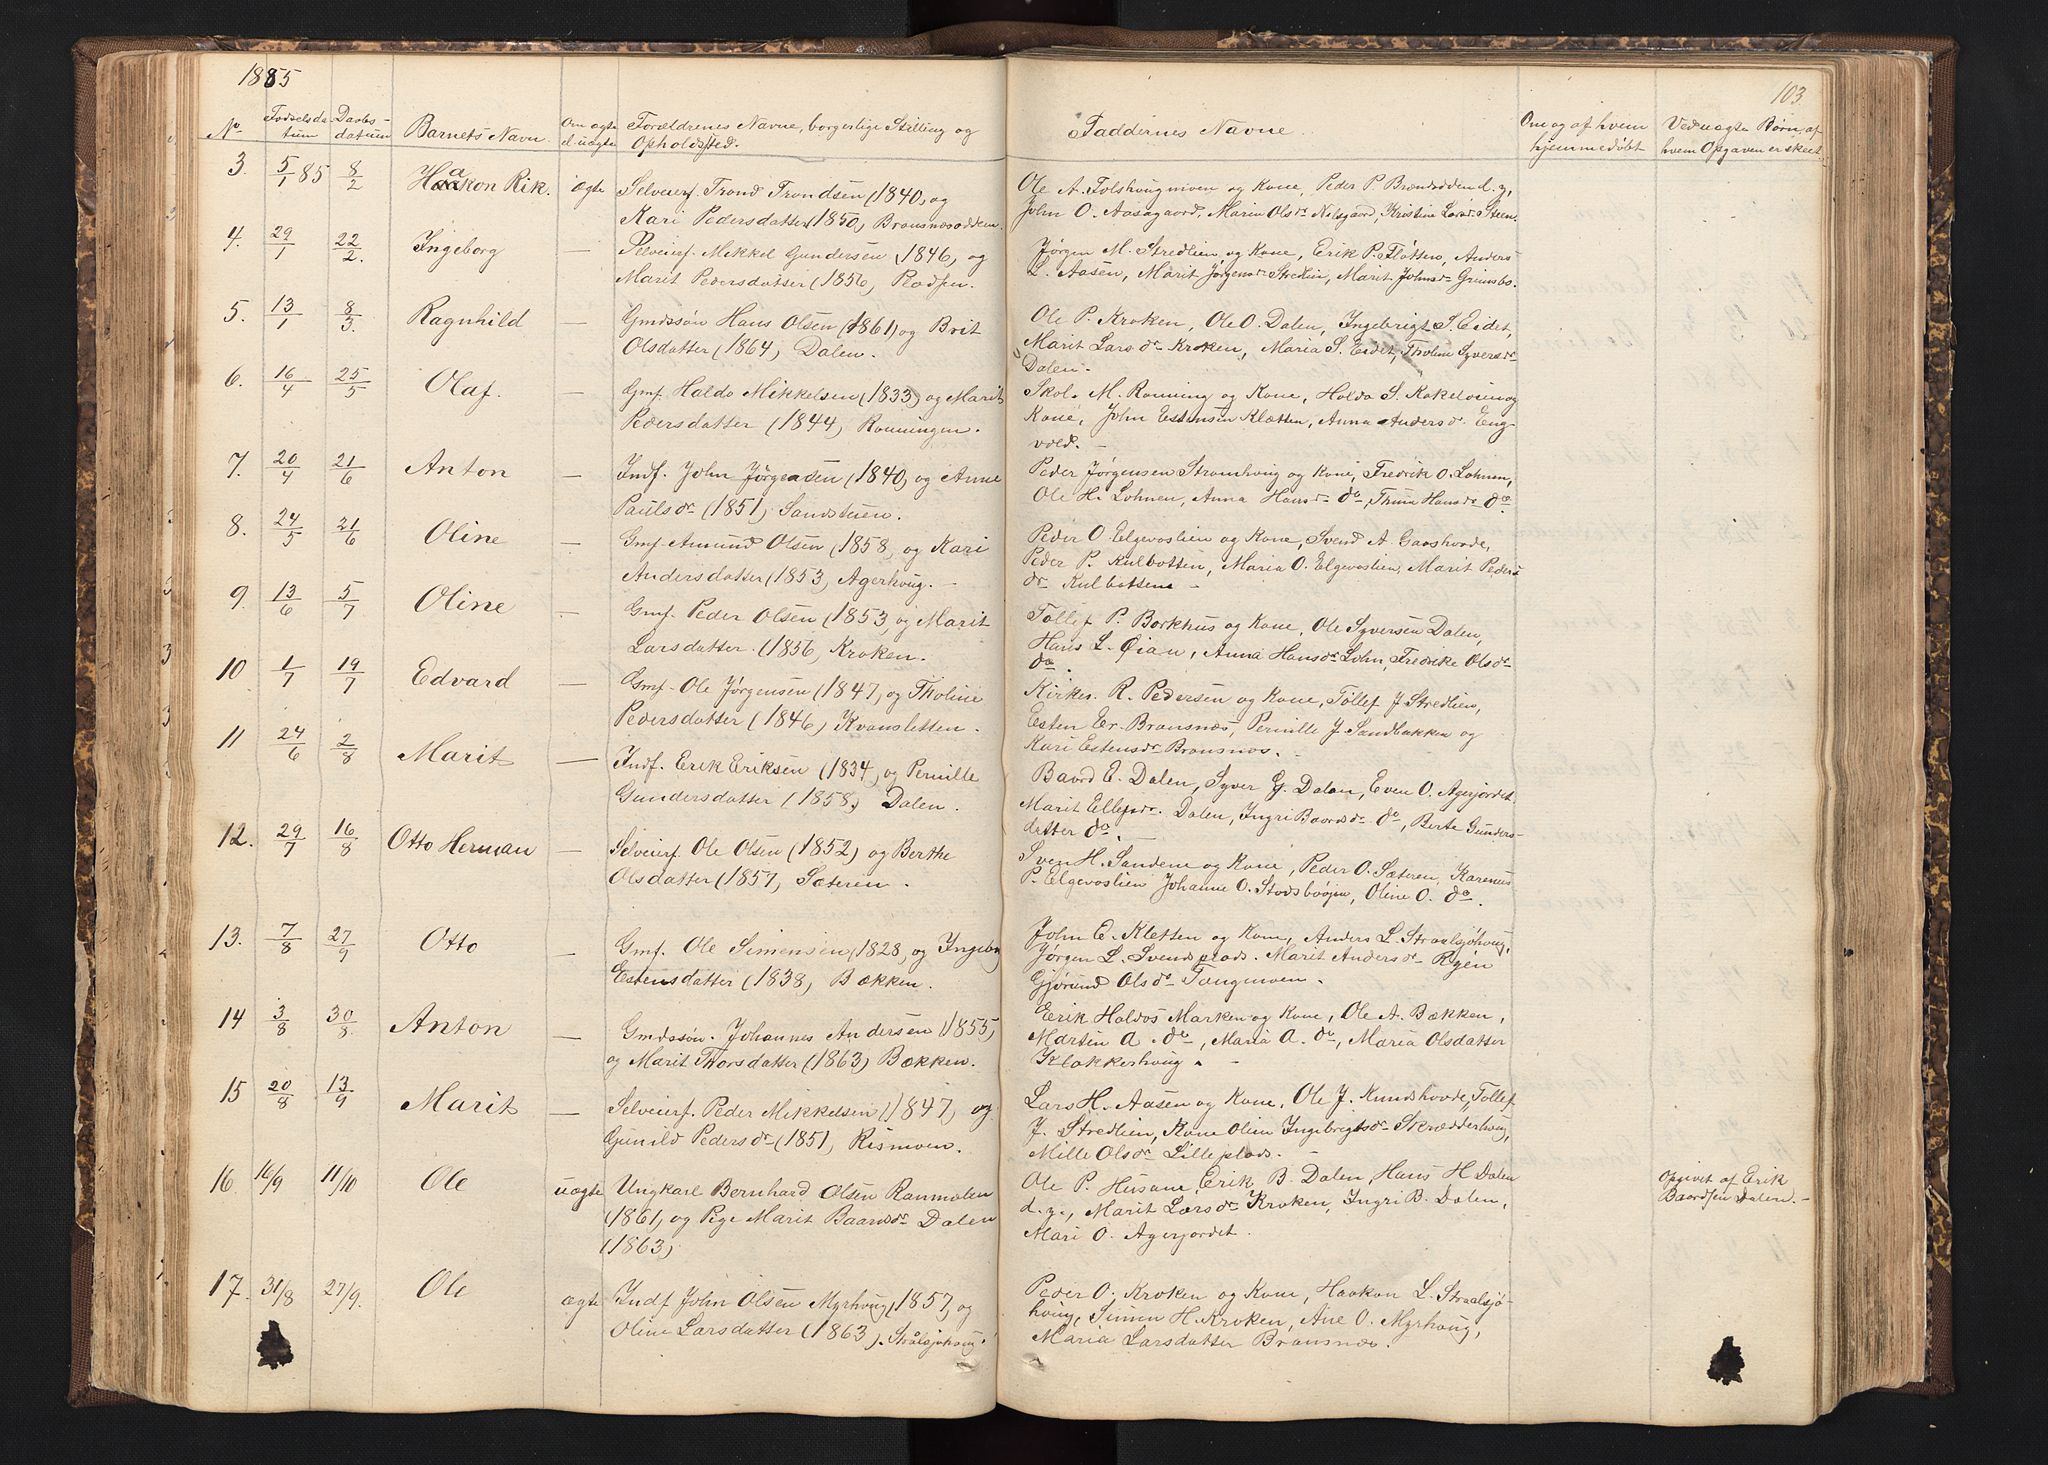 1885
103.
No
Fødselsdatum
Daabsdatum
Barnets Navn.
Om ægte el. uægte
Forældrenes Navne, borgerlige Stilling og
Opholdssted.
Faddernes Navne.
Om og af hvem
hjemmedøbt
Ved uægte Børn, af
hvem Opgaven er skeet.
3. 5/1 85 8/2 Haakon Rik. ægte Selveierf. Trond Trondsen (1840, og
Kari Pedersdatter (1850, Brænsnæsodden.
Ole A. Tolshougmoen og Kone, Peder P. Brænsodden d. y,
John O. Aasgaard, Maria Olsdr Nilsgaard, Kristine Larsdr Steen.
4. 29/1 22/2. Ingeborg — Selveierf. Mikkel Gundersen (1846, og
Marit Pedersdatter (1856, Pladsen.
Jørgen M. Strædlien og Kone, Erik P. Fløtten, Anders
L. Aasen, Marit Jørgensdr Strædlien, Marit Johnsdr Grimsbo.
5. 13/1 8/3. Ragnhild — Gmdssøn Hans Olsen (1861) og Brit
Olsdatter (1864, Dalen.
Ole P. Kroken, Ole O. Dalen, Ingebrigt S. Eidet,
Marit Larsdr Kroken, Maria S. Eidet, Tholine Syversdr
Dalen.
6. 16/4 25/5 Olaf. — Gmf. Haldo Mikkelsen (1833) og Marit
Pedersdatter (1844, Rønningen.
Skol. M. Rønning og Kone, Haldo S. Kakeloen og
Kone, John Estensen Kletten, Anna Andersdr. Eng-
vold.
7. 20/4 21/6 Anton — Indf. John Jørgensen (1840, og Anne
Paulsdr (1851, Sandsteien.
Peder Jørgensen Strømhoug og Kone, Fredrik O. Lohnen,
Ole H. Lohnen, Anna Hansdr do, Thrine Hansdr do.
8. 24/5 21/6 Oline — Gmf. Amund Olsen (1858, og Kari
Andersdatter (1853, Agerhoug.
Peder O. Elgevoslien og Kone, Svend A. Gaashovde,
Peder P. Kulbotten, Maria O. Elgevoslien, Marit Peders
dr Kulbotten
9. 13/6 5/7 Oline — Gmf. Peder Olsen (1853, og Marit
Larsdatter. (1856, Kroken.
Tollef P. Borkhus og Kone, Ole Syversen Dalen,
Hans L. Øian, Anna Hansdr Lohn, Fredrike Olsdr
do.
10 1/7 19/7 Edvard — Gmf. Ole Jørgensen (1847, og Tholine
Pedersdatter (1846, Kvansletten.
Kirkes. R. Pedersen og Kone, Tollef J Strædlien,
Esten Er. Brænsnæs, Pernille J. Sandbakken og
Kari Estensdr Brænsnæs.
11 24/6 2/8 Marit — Indf. Erik Eriksen (1834, og Pernille
Gundersdatter (1858, Dalen.
Baard E. Dalen, Syver G. Dalen, Even O. Agerjordet
Marit Ellefsdr. Dalen, Ingri Baardsdr do, Berte Gunders-
datter do.
12. 29/7 16/8 Otto Herman — Selveierf. Ole Olsen (1852) og Berthe
Olsdatter (1857, Sæteren.
Sven H. Sandene og Kone, Peder O. Sæteren, Karenus
P. Elgevoslien Johanne O. Stadsbøien, Oline O. do.
13. 7/8 27/9 Otto — Gmf. Ole Simensen (1828, og Ingeb
Estensdatter (1838, Bækken.
John E. Kletten og Kone, Anders L. Straalsjøhoug,
Jørgen L. Svendsplads. Marit Andersdr Ryen
Gjørund Olsdr Tangmoen.
14 3/8 30/8 Anton — Gmdssøn. Johannes Andersen (1855,
og Marit Thorsdatter (1863) Bækken.
Eerik Haldos Marken og Kone, Ole A. Bækken,
Marten A. do, Maria A. do, Maria Olsdatter
Klokkerhoug.
15 20/8 13/9 Marit — Selveierf. Peder Mikkelsen (1847, og
Gunild Pedersdr (1851, Rismoen.
Lars H. Aasen og Kone, Ole J. Kundshovde, Tollef
J. Strædlien, Kone Olein Ingebrigtsdr Skrædderhoug,
Mille Olsdr Lilleplads.
16 16/9 11/10 Ole uægte Ungkarl Bernhard Olsen Ranmælen
(1861, og Pige Marit Baardsdr Dalen
(1863,
Ole P. Husan, Erik B. Dalen, Hans H Dalen
d. y., Marit Larsdr Kroken, Ingri B. Dalen,
Mari O. Agerjordet.
Opgivet af Erik
Baardsen Dalen. -
17. 31/8 27/9. Ole ægte Indf John Olsen Myrhoug (1857, og
Oline Larsdatter (1863). Strålsjøhoug.
Peder O. Kroken og Kone, Haakon L. Straalsjø-
houg, Simen H. Kroken, Ane O. Myrhoug,
Maria Larsdatter Brænsnæs.